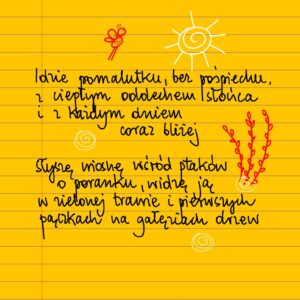 Idzie pomalutku, bez pośpiechu,
z ciepłym oddechem słońca
i z każdym dniem
coraz bliżej
Słyszę wiosnę wśród ptaków
o poranku, widzę ją
w zielonej trawie i pierwszych
pączkach na gałęziach drzew